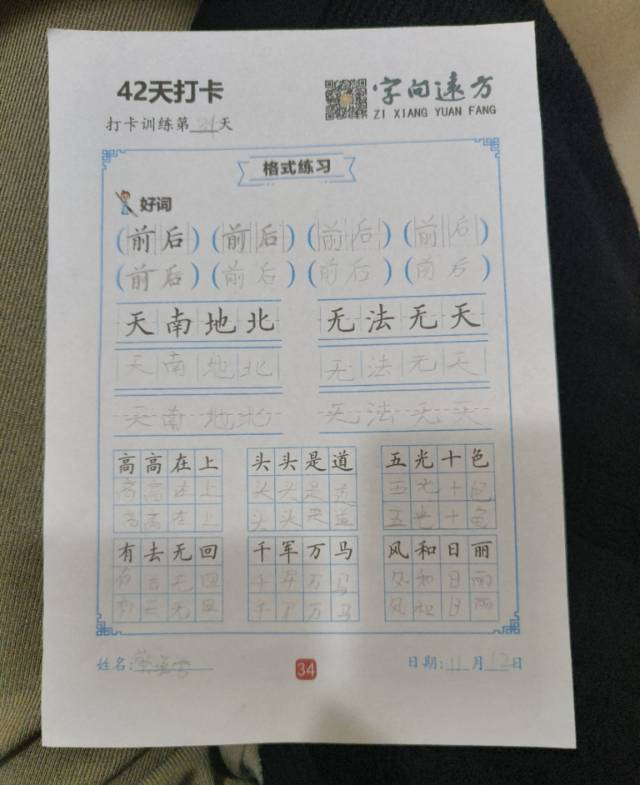 42天打卡
字向远方
ZI XIANG YUAN FANG
打卡训练第 天
格式练习
好词
(前后) (前后) (前后) (前后)
(前后) (前后) (前后) (前后)
天南地北 无法无天
天南地北 无法无天
天南地北 无法无天
高高在上 头头是道 五光十色
高高在上 头头是道 五光十色
高高在上 头头是道 五光十色
有去无回 千军万马 风和日丽
有去无回 千军万马 风和日丽
有去无回 千军万马 风和日丽
姓名:
34
日期:11月12日